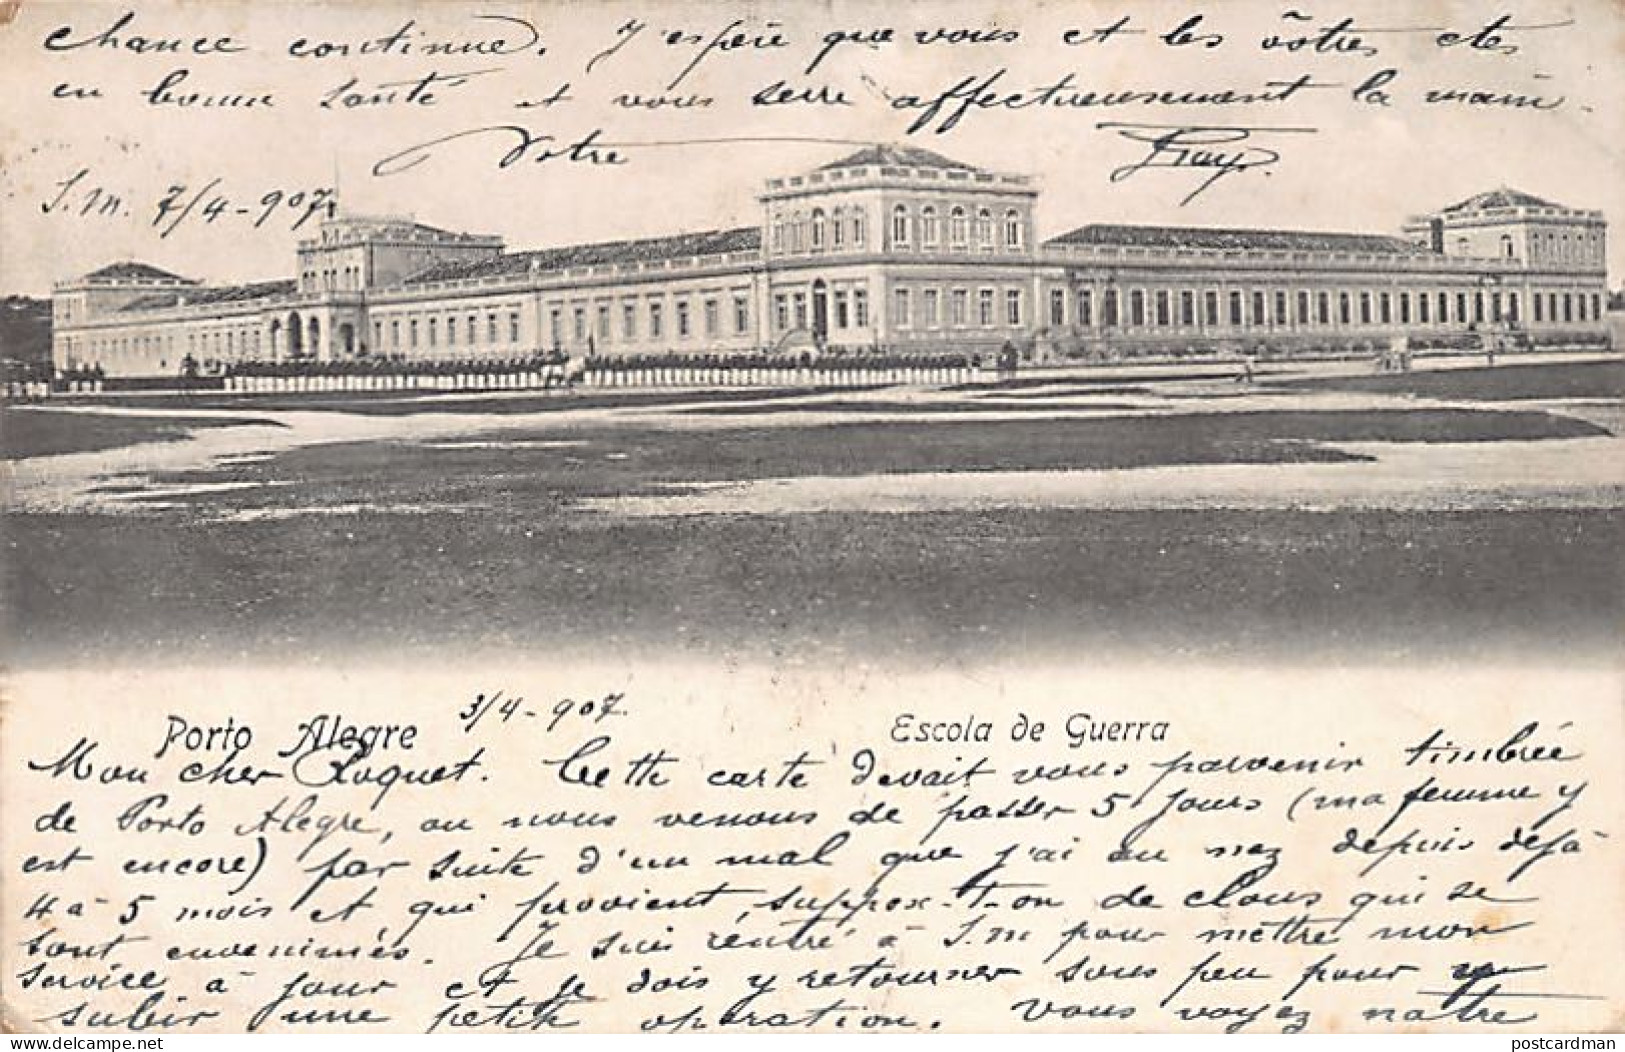 chance continue. J'espère que vous et les vôtres etes
en bonne santé et vous serre affectueusement la main.
Votre
S.M. 7/4-907.
3/4-907.
Porto Alegre
Escola de Guerra
Mon cher Roquet. Cette carte devait vous parvenir timbrée
de Porto Alegre, ou nous venons de passer 5 jours (ma femme y
est encore) par suite d'un mal que j'ai au nez depuis dejà
4 à 5 mois et qui provient, suppose-t-on de clous qui se
sont envenimés. Je suis rentré à S.M pour mettre mon
service à jour et je dois y retourner sous peu pour
subir une petite opération. Vous voyez notre
delcampe.net
postcardman